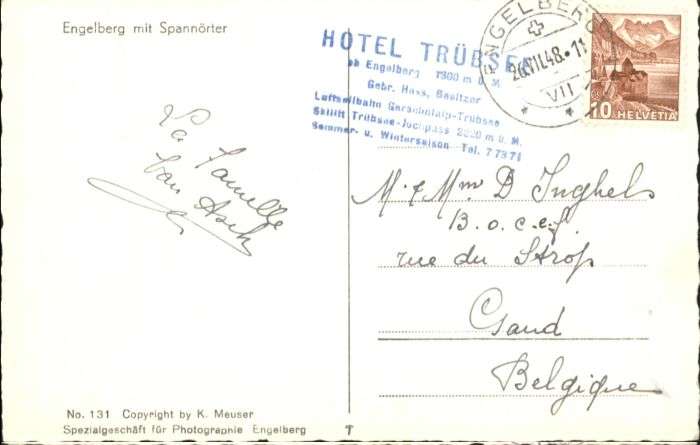 Engelberg mit Spannörter
HOTEL TRÜBSEE
ob Engelberg 1800 m ü. M.
Gebr. Hess, Besitzer
Luftseilbahn Gerschnialp-Trübsee
Skilift Trübsee-Jochpass 2220 m ü. M.
Sommer- u. Wintersaison Tel. 7 73 71
ENGELBERG
26.VII.48.-11
VII
10 HELVETIA
La famille
Van Asch
M. & Mme D Inghels
B. o. c. e. f.
rue du Strop
Gand
Belgique
No. 131 Copyright by K. Meuser
Spezialgeschäft für Photographie Engelberg